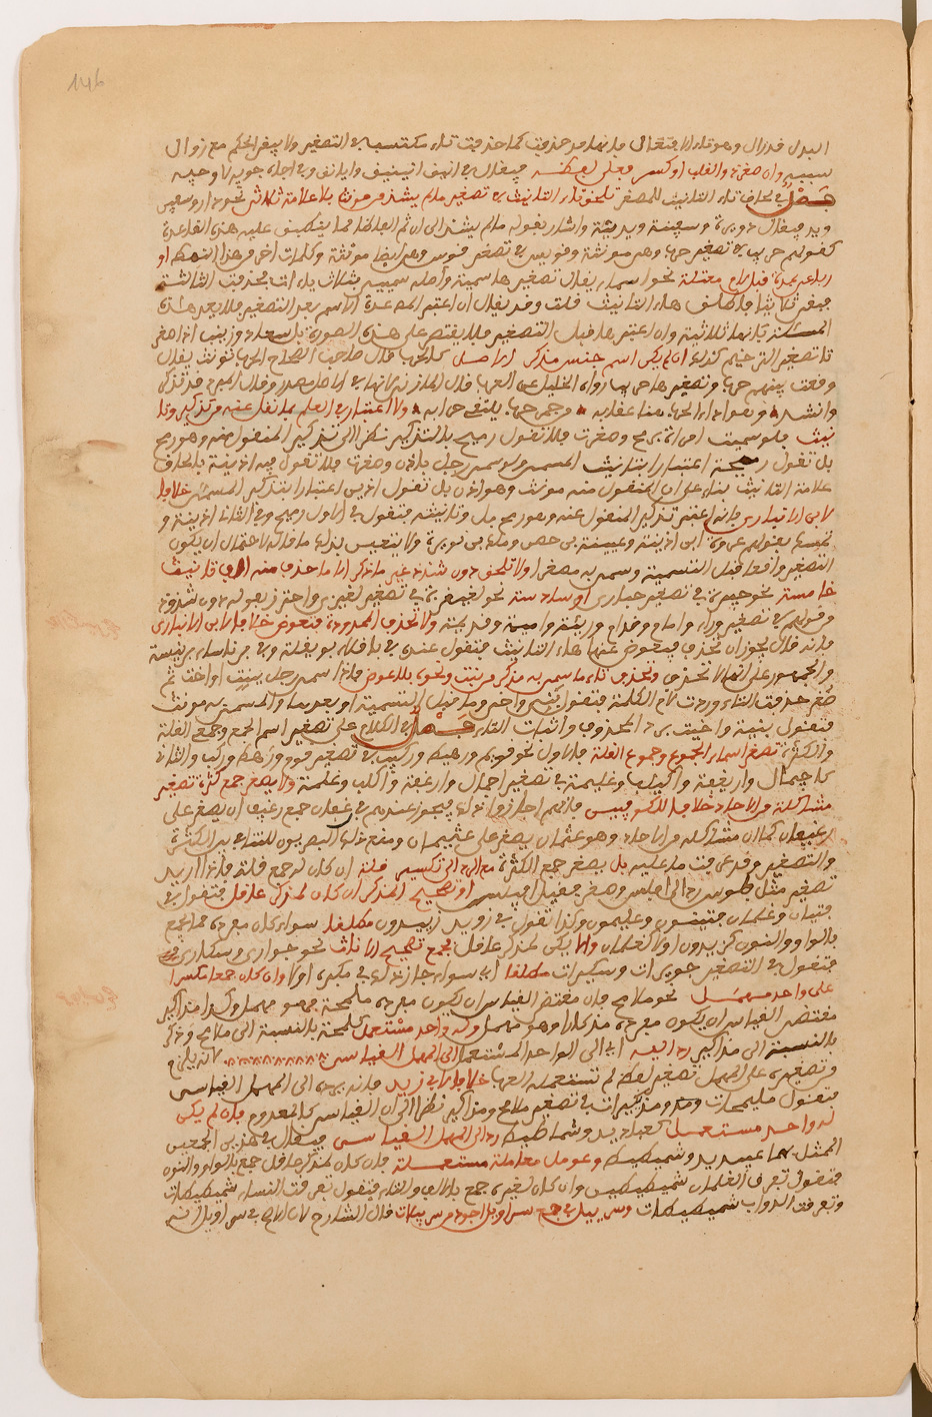 146
البدل قد زال وهو تاء الافتعال فإنها قد حذفت كما حذفت تاء مكتسب في التصغير ولا يبقى الحكم مع زوال
سببه وإن صغر ذو القلب أو كسر فعلى لفظه فيقال في أينق أيينيق وأيانق وفي الجاه جويه لا وجيه
فصل في لحاق تاء التأنيث للمصغر تلحق تاء التأنيث في تصغير ما لم يشذ من مؤنث بلا علامة ثلاثي نحو دار وسن
ويد فيقال دويرة وسنينة ويدية وأشار بقوله ما لم يشذ إلى أن ثم ألفاظا
كقولهم حريب في تصغير حرب وهي مؤنثة وقويس في تصغير قوس وهي أيضا مؤنثة وكلمات أخر من هذا النمط أو
رباعي بمدة قبل لام معتلة نحو أسماء يقال في تصغيرها سمية وأصله سميية بثلاث ياءات فحذفت الثالثة
فبقي ثلاثيا فلحقته هاء التأنيث قلت وقد يقال إن اعتبر
المسئلة فإنها ثلاثية وإن اعتبر ما قبل التصغير فلا يقتصر على هذه الصورة بل سعاد وزينب إذا صغر
تا تصغير الترخيم كذلك إن لم يكن اسم جنس مذكر الأصل كالحرب قال صاحب الصحاح الحرب تؤنث يقال
وقعت بينهم حرب وتصغيرها حريب رواه الخليل عن العرب قال المازني لأنها في الأصل مصدر وقال المبرد قد تذكر
وأنشد وهو إذا الحرب هفا عقابه وجم حرب يلتقي حرابه ولا اعتبار في العلم بما نقل عنه من تذكير وتا
نيث فلو سميت امرأة برمح وصغرت فلا تقول رميح بالتذكير نظرا إلى تذكير المنقول منه وهو رمح
بل تقول رميحة اعتبارا بتأنيث المسمى ولو سمي رجل بأذن وصغر فلا تقول فيه أذينة بإلحاق
علامة التأنيث بناء على أن المنقول منه مؤنث وهو أذن بل تقول أذين اعتبارا بتذكير المسمى خلافا
لابن الأنباري فإنه اعتبر تذكير المنقول عنه وهو رمح بل وتأنيثه فتقول في الأول رميح وفي الثاني أذينة و
تمسك بقولهم عروة ابن أذينة وعيينة بن حصن ومالك بن نويرة ولا يتعين بذلك ما قاله لاحتمال أن يكون
التصغير واقعا قبل التسمية وسمي به مصغرا ولا تلحق دون شذوذ غير ما ذكر إلا ما حذف منه ألف تأنيث
خامسة نحو حبيرة في تصغير حبارى أو سادسة نحو لغيغيزة في تصغير لغيزى واحترز بقوله دون شذوذ
من قولهم في تصغير وراء وأمام وقدام وريئة وأميمة وقديديمة ولا تحذف الممدودة فتعوض خلافا لابن الأنباري
فإنه قال يجوز أن تحذف فيعوض عنها هاء التأنيث فتقول عنده في باقلاء بويقلة وفي برناساء برينسة
والجمهور على أنها لا تحذف وتحذف تاء ما سمي به مذكر من بنت ونحوه بلا عوض فإذا سمي رجل ببنت أو أخت ثم
صغر حذفت التاء وردت لام الكلمة فتقول بني وأخي
فتقول بنية وأخية برد المحذوف وإثبات التاء فصل في الكلام على تصغير اسم الجمع وجموع القلة
والكثرة تصغر أسماء الجموع وجموع القلة فالأول نحو قويم ورهيط وركيب في تصغير قوم ورهط وركب والثاني
كأجيمال وأريغفة وأكيلب وغليمة في تصغير أجمال وأرغفة وأكلب وغلمة ولا يصغر جمع كثرة تصغير
مشاكلة من الآحاد خلافا للكوفيين فإنهم أجازوا ذلك فيجوز عندهم في رغفان جمع رغيف أن يصغر على
رغيفان كما أن مشاكله من الآحاد وهو عثمان يصغر على عثيمان ومنع ذلك البصريون للتنافي بين الكثرة
والتصغير
تصغير مثل فلوس رد إلى أفلس وصغر فقيل أفيلس أو تصحيح المذكر إن كان لمذكر عاقل فتقول في
فتيان وغلمان فتيون وغليمون وكذا تقول في زويد زييدون مطلقا سواء كان مفرده مما يجمع
بالواو والنون كزيدون أو لا كغلمان وإلا يكن لمذكر عاقل فجمع تصحيح الإناث نحو جواري وسكارى
فتقول في التصغير جويريات وسكيرات مطلقا أي سواء جاز ذلك في مكبره أو لا وإن كان جمعا مكسرا
على واحد مهمل نحو ملامح فإن مقتضى القياس أن يكون مفرده ملمحة فهو مهمل وكذا مذاكير
مقتضى القياس أن يكون مفرده مذكارا وهو مهمل وله واحد مستعمل كلمحة بالنسبة إلى ملامح وذكر
بالنسبة إلى مذاكير رد إليه أي إلى الواحد المستعمل لا إلى المهمل القياسي لأنه يلزم
من تصغيره على المهمل تصغير لفظ لم تستعمله العرب خلافا لأبي زيد فإنه يرده إلى المهمل القياسي
فتقول مليمحات ومذيكيرات في تصغير ملامح ومذاكير نظرا إلى أن القياس كالمعدوم فإن لم يكن
له واحد مستعمل كعباديد وشماطيط رد إلى المهمل القياسي فيقال في هذين الجمعين
الممثل بهما عبيديد وشميطيط وعومل معاملة مستعملة فإن كان لمذكر عاقل جمع بالواو والنون
فتقول تفرق الغلمان شميطيطين وإن كان لغيره جمع بالألف والتاء فتقول تفرقت النساء شميطيطات
وتفرقت الدواب شميطيطات وسرييل في جمع سراويل أجود من سرييلات قال الشارح